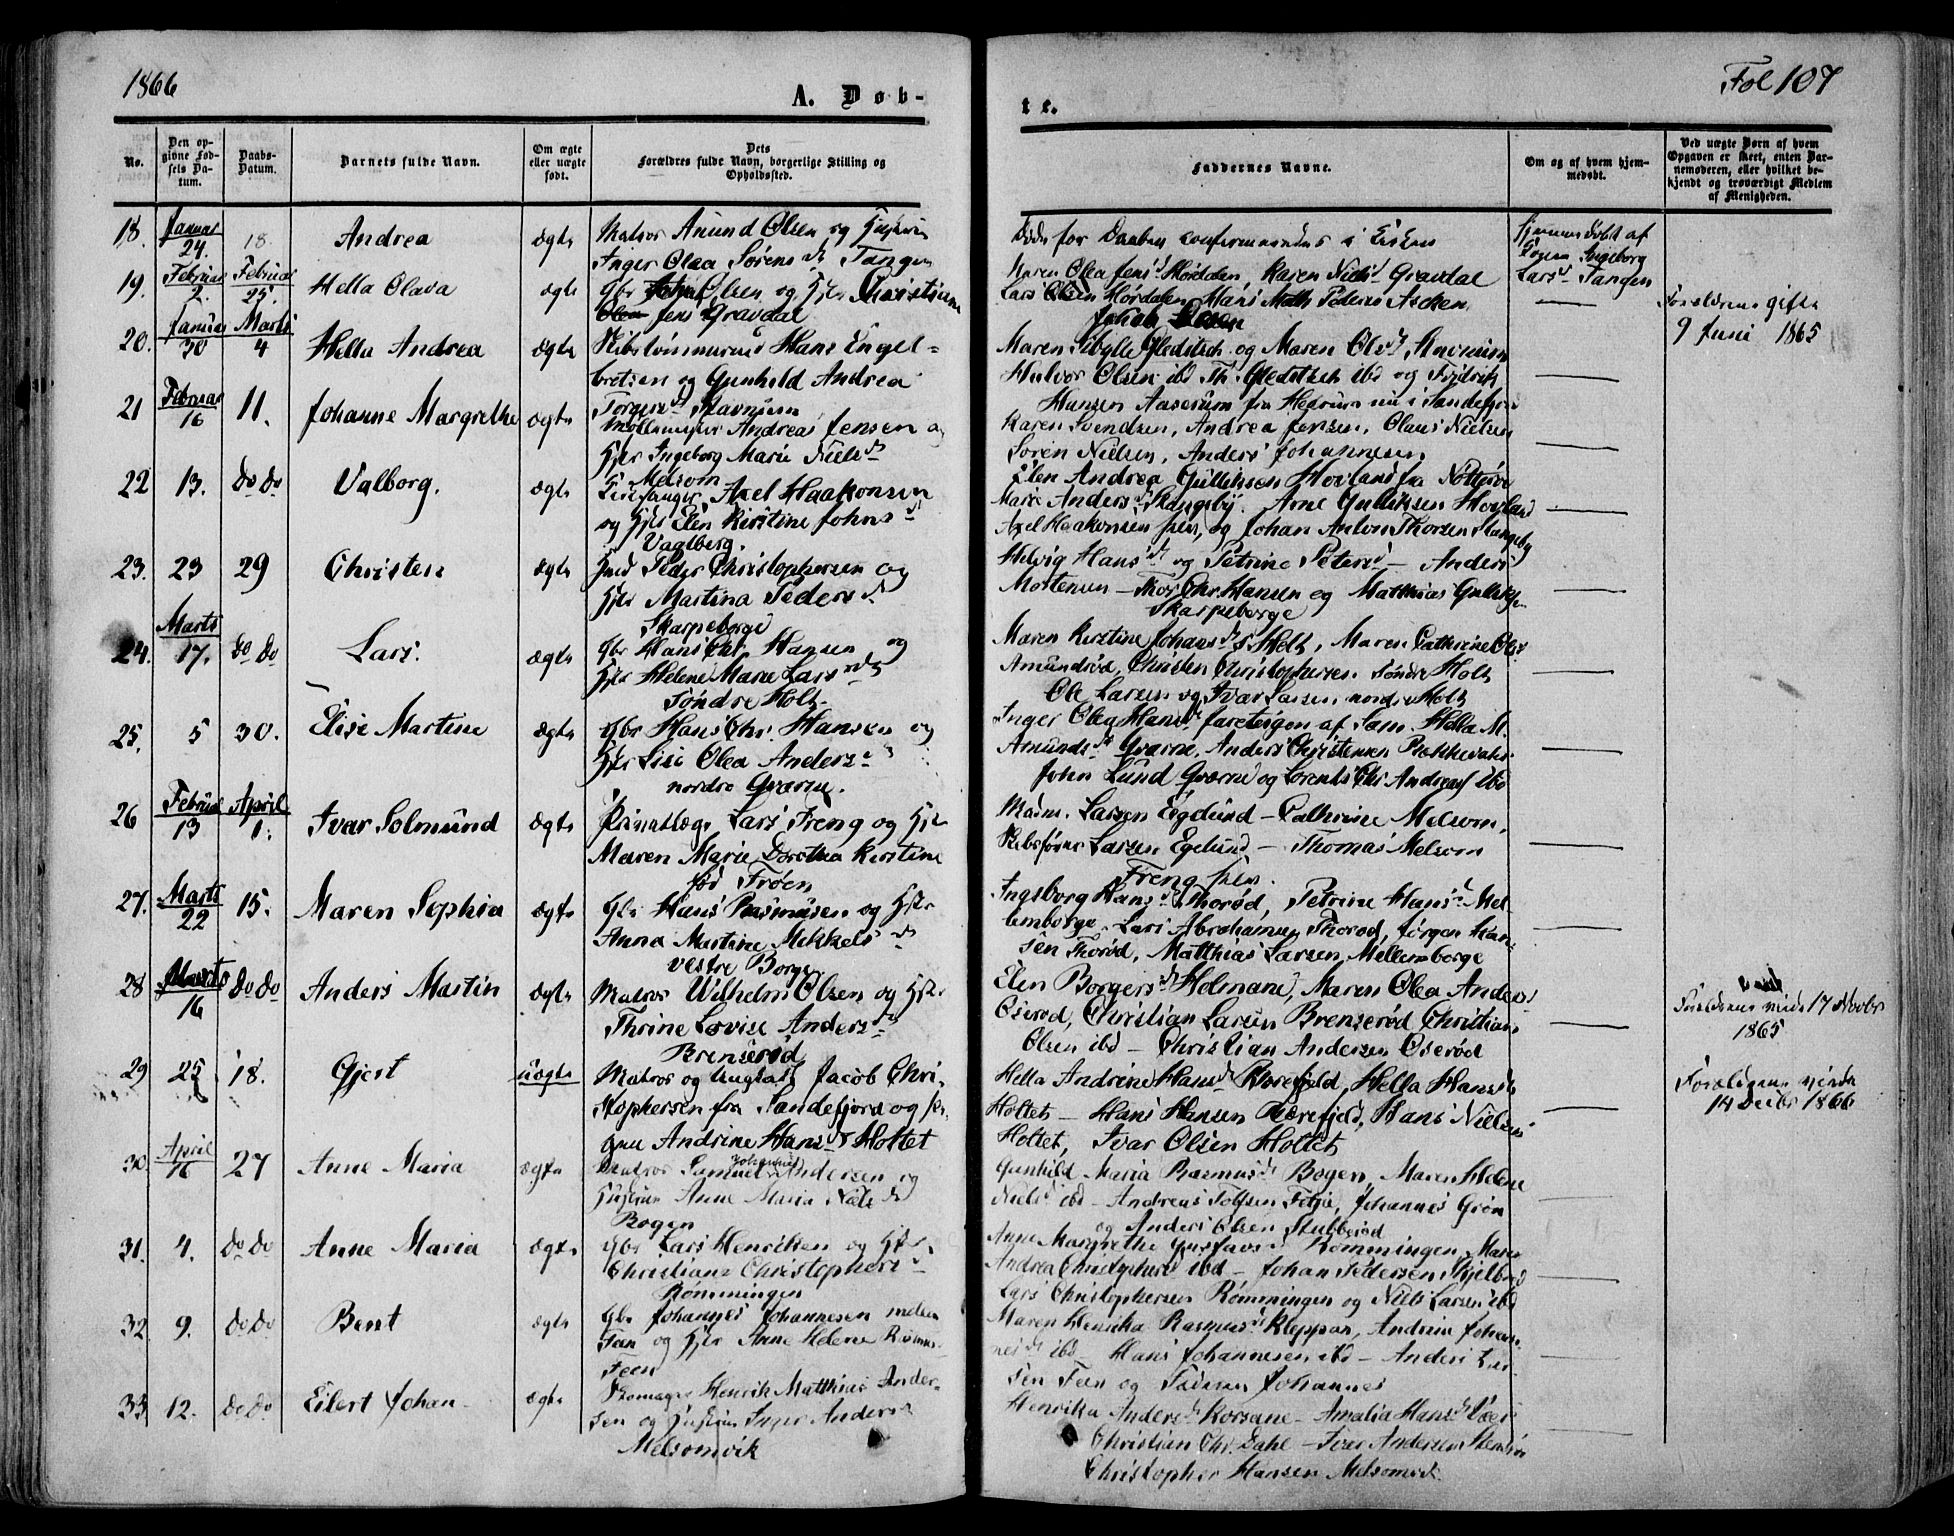 1866
A. Døb-
No.
Den op-
givne Fød-
sels Da-
tum.
Daabs-
Datum.
Barnets fulde Navn.
Om ægte
eller uægte
født.
Dets
Forældres fulde Navn, borgerlige Stilling og
Opholdssted.
18. Januar 24. 18. Andrea ægte Matros Anund Olsen og
Inger Olea Sørens d. Tangen
19. Februar 2. Februar 25. Hella Olava ægte Gbr Olsen og Hstr Christiane
Jens Gravdal
20. Januar 30 Marts 4 Hella Andrea ægte Skibstømmermd Hans Engel-
bretsen og Gunhild Andrea
21 Februar 16 11. Johanne Margrethe ægte
Møllemester Andreas Jensen og
Hstr Ingeborg Marie Niels d
Melsom
22 13. do do Valborg. ægte Axel Haakonsen
og Hstr Elen Kirstine Johns d
23. 23 29 Christen ægte Peder Christophersen og
Hstr Martina Peders d
Skarpeborge
24. Marts 17. do do Lars. ægte Gbr Hans Chr. Hansen og
Hstr Helene Marie Lars d
Søndre Holt.
25. 5 30. Elise Martine ægte Gbr Hans Chr. Hansen og
Hstr Lise Olea Anders d
nordre Gvarne.
26 Februar 13 April 1. Ivar Solmund ægte Privatlæge Lars Freng og Hstr
Maren Marie Dorothea Kirstine
fød Trøen
27. Marts 22 15. Maren Sophia ægte Gbr Hans Rasmusen og Hstr
Anna Martine Mikkels d
vestre Borgen
28 Marts 16 do do Anders Martin ægte Matros Wilhelm Olsen og Hstr
Thrine Lovise Anders d
Brenserød
29 25 18. Gjest uægte Matros og Ungkarl Jacob Chri-
stophersen fra Sandefjord og Pi-
gen Andrine Hans d Holtet
30. April 16 27 Anne Maria ægte Matros Samuel Johannes Andersen og
Hustru Anne Maria Niels d
Bogen
31. 4. do do Anne Maria ægte Gbr Lars Henriksen og Hstr
Christiane Christophers d
Rømmingen
32. 9. do do Bent ægte Gbr Johannes Johannesen mellem
Feen og Hstr Anne Helene Rasmus-
Feen
33. 12. do do Eilert Johan ægte Skomager Henrik Matthias Ander-
sen og Hustru Inger Anders d
Melsomvik
Fol 107
te.
Faddernes Navne.
Om og af hvem hjem-
medøbt.
Ved uægte Børn af hvem
Opgaven er skeet, enten Bar-
nemoderen, eller hvilket be-
kjendt og troværdigt Medlem
af Menigheden.
Døde før Daaben i Kirken
Hjemmedøbt af
Ingeborg
Lars d Tangen
Maren Olea Jens d Hørdalen, Karen Niels d Gravdal
Lars Olsen Hørdalen, Hans Math Pedersen Ascken
Forældrene gifte
9 Juni 1865
Maren Sibylle Gleditsch og Maren Ols d
Halvor Olsen ibd Th. Gleditsch ibd og Fredrik
Hansen Aaserum fra Hedrum nu i Sandefjord
Karen Svendsen, Andrea Jensen, Olaus Nielsen
Søren Nielsen, Anders Johannesen
Elen Andrea Gulliksen Hovland fra Nøtterø
Marie Anders d Stangeby. Arne Gulliksen Hovland
Axel Haakonsen selv, og Johan Anton Thorsen Stangeby
Helvig Hans d og Petrine Peters d – Anders
Mortensen – Thor Chr. Hansen og Matthias Gulliks
Skarpeborge
Maren Kirstine Johans d s. Holt, Maren Cathrine Ols d
Amundrød, Christen Christophersen Søndre Holt
Ole Larsen og Ivar Larsen nordre Holt
Inger Olea Hans d af Sem. Hella M.
Amunds d Gvarne, Anders Christensen
John Lund Gvarne og Lorents Chr. Andreas ibd
Madm. Larsen Egelund – Cathrine Melsom,
Skibsfører Larsen Egelund – Thomas Melsom
Freng selv.
Ingeborg Hans d Thorød, Petrine Hans d Mel-
lemborge. Lars Abrahamsen Thorød, Jørgen Han-
sen Thorød, Matthias Larsen Mellemborge
Elen Borgers d Holmane, Maren Olea Anders
Oserød, Christian Larsen Brenserød Christian
Olsen ibd – Christian Andersen Oserød
17 Novbr
1865
Hella Andrine Hans d Børefjeld, Hella Hans d
Holtet – Hans Hansen Børefjeld, Hans Nielsen
Holtet, Ivar Olsen Holtet
14 Decbr 1866
Gunhild Maria Rasmus d Bogen, Maren Helene
Niels d ibd – Andreas Tolfsen Johannes Grøn
og Anders Olsen Stubberød
Anne Margrethe Gustavs d Rømmingen, Maren
Andrea Christophers d ibd – Johan Pedersen
Lars Christophersen Rømmingen og Niels Larsen ibd
Maren Henrika Rasmus d Kleppan, Andrine Johan-
nes d ibd – Hans Johannesen ibd – Anders Lar-
sen Feen og Johannes
Henrika Anders d Korsane – Amalia Hans d
Christian Chr. Dahl – Iver Andersen
Christopher Hansen Melsomvik